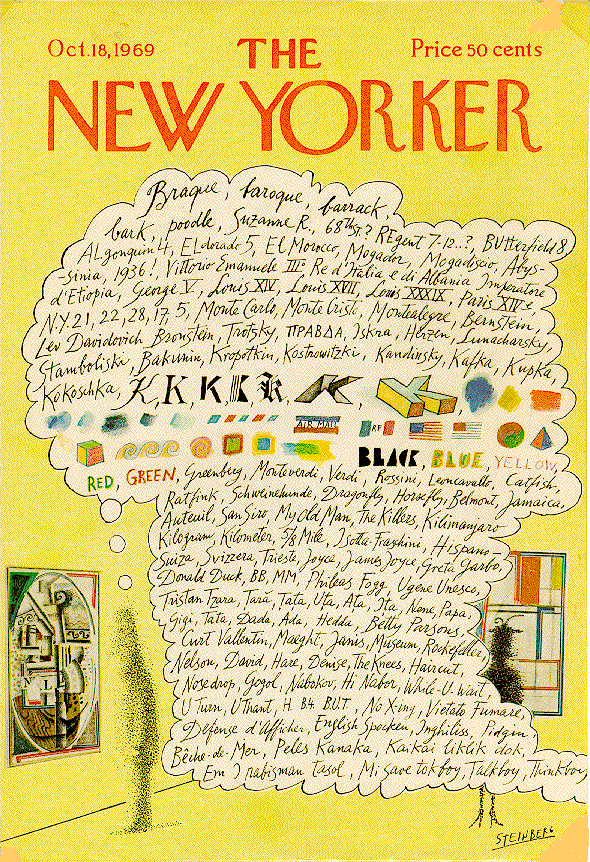 Oct.18,1969
THE
Price 50 cents
NEW YORKER
Braque, baroque, barrack,
bark, poodle, Suzanne R., 68th ST.? REgent 7-12...?, BUtterfield 8
ALgonquin 4, ELdorado 5, El Morocco, Mogador, Mogadiscio, Abys-
sinia, 1936!, Vittorio Emanuele III° Re d'Italia e di Albania Imperatore
d'Etiopia, George V, Louis XIV, Louis XVII, Louis XXXIX, Paris XIVe
N.Y. 21, 22, 28, 17, 5, Monte Carlo, Monte Cristo, Montealegre, Bernstein,
Lev Davidovich Bronstein, Trotsky, ПРАВДА, Iskra, Herzen, Lunacharsky,
Stamboliski, Bakunin, Kropotkin, Kostrowitzki, Kandinsky, Kafka, Kupka,
Kokoschka, K, K, K, K, K, K,
AIR MAIL
RF
BLACK, BLUE, YELLOW,
RED, GREEN, Greenberg, Monteverdi, Verdi, Rossini, Leoncavallo, Catfish,
Ratfink, Schweinehunde, Dragonfly, Horsefly, Belmont, Jamaica,
Auteuil, San Siro, My Old Man, The Killers, Kilimanjaro
Kilogram, Kilometer, 5/8 Mile, Isotta-Fraschini, Hispano-
Suiza, Svizzera, Trieste, Joyce, James Joyce, Greta Garbo,
Donald Duck, BB, MM, Phileas Fogg, Ugene Unesco,
Tristan Tzara, Tara, Tata, Uta, Ata, Ita, Nene, Papa,
Gigi, Tata, Dada, Ada, Hedda, Betty Parsons,
Curt Vallentin, Maeght, Janis, Museum, Rockefeller,
Nelson, David, Hare, Denise, The Knees, Haircut,
Nosedrop, Gogol, Nabokov, Hi Nabor, While-U-Wait,
U Turn, U Thant, H. B4. BUT., No Xing, Vietato Fumare,
Défense d'Afficher, English Spocken, Inghiliss, Pidgin
Bêche-de-Mer, Peles Kanaka, Kaikai liklik dok,
Em I rabisman tasol, Mi save tokboy, Talkboy, Thinkboy
STEINBERG